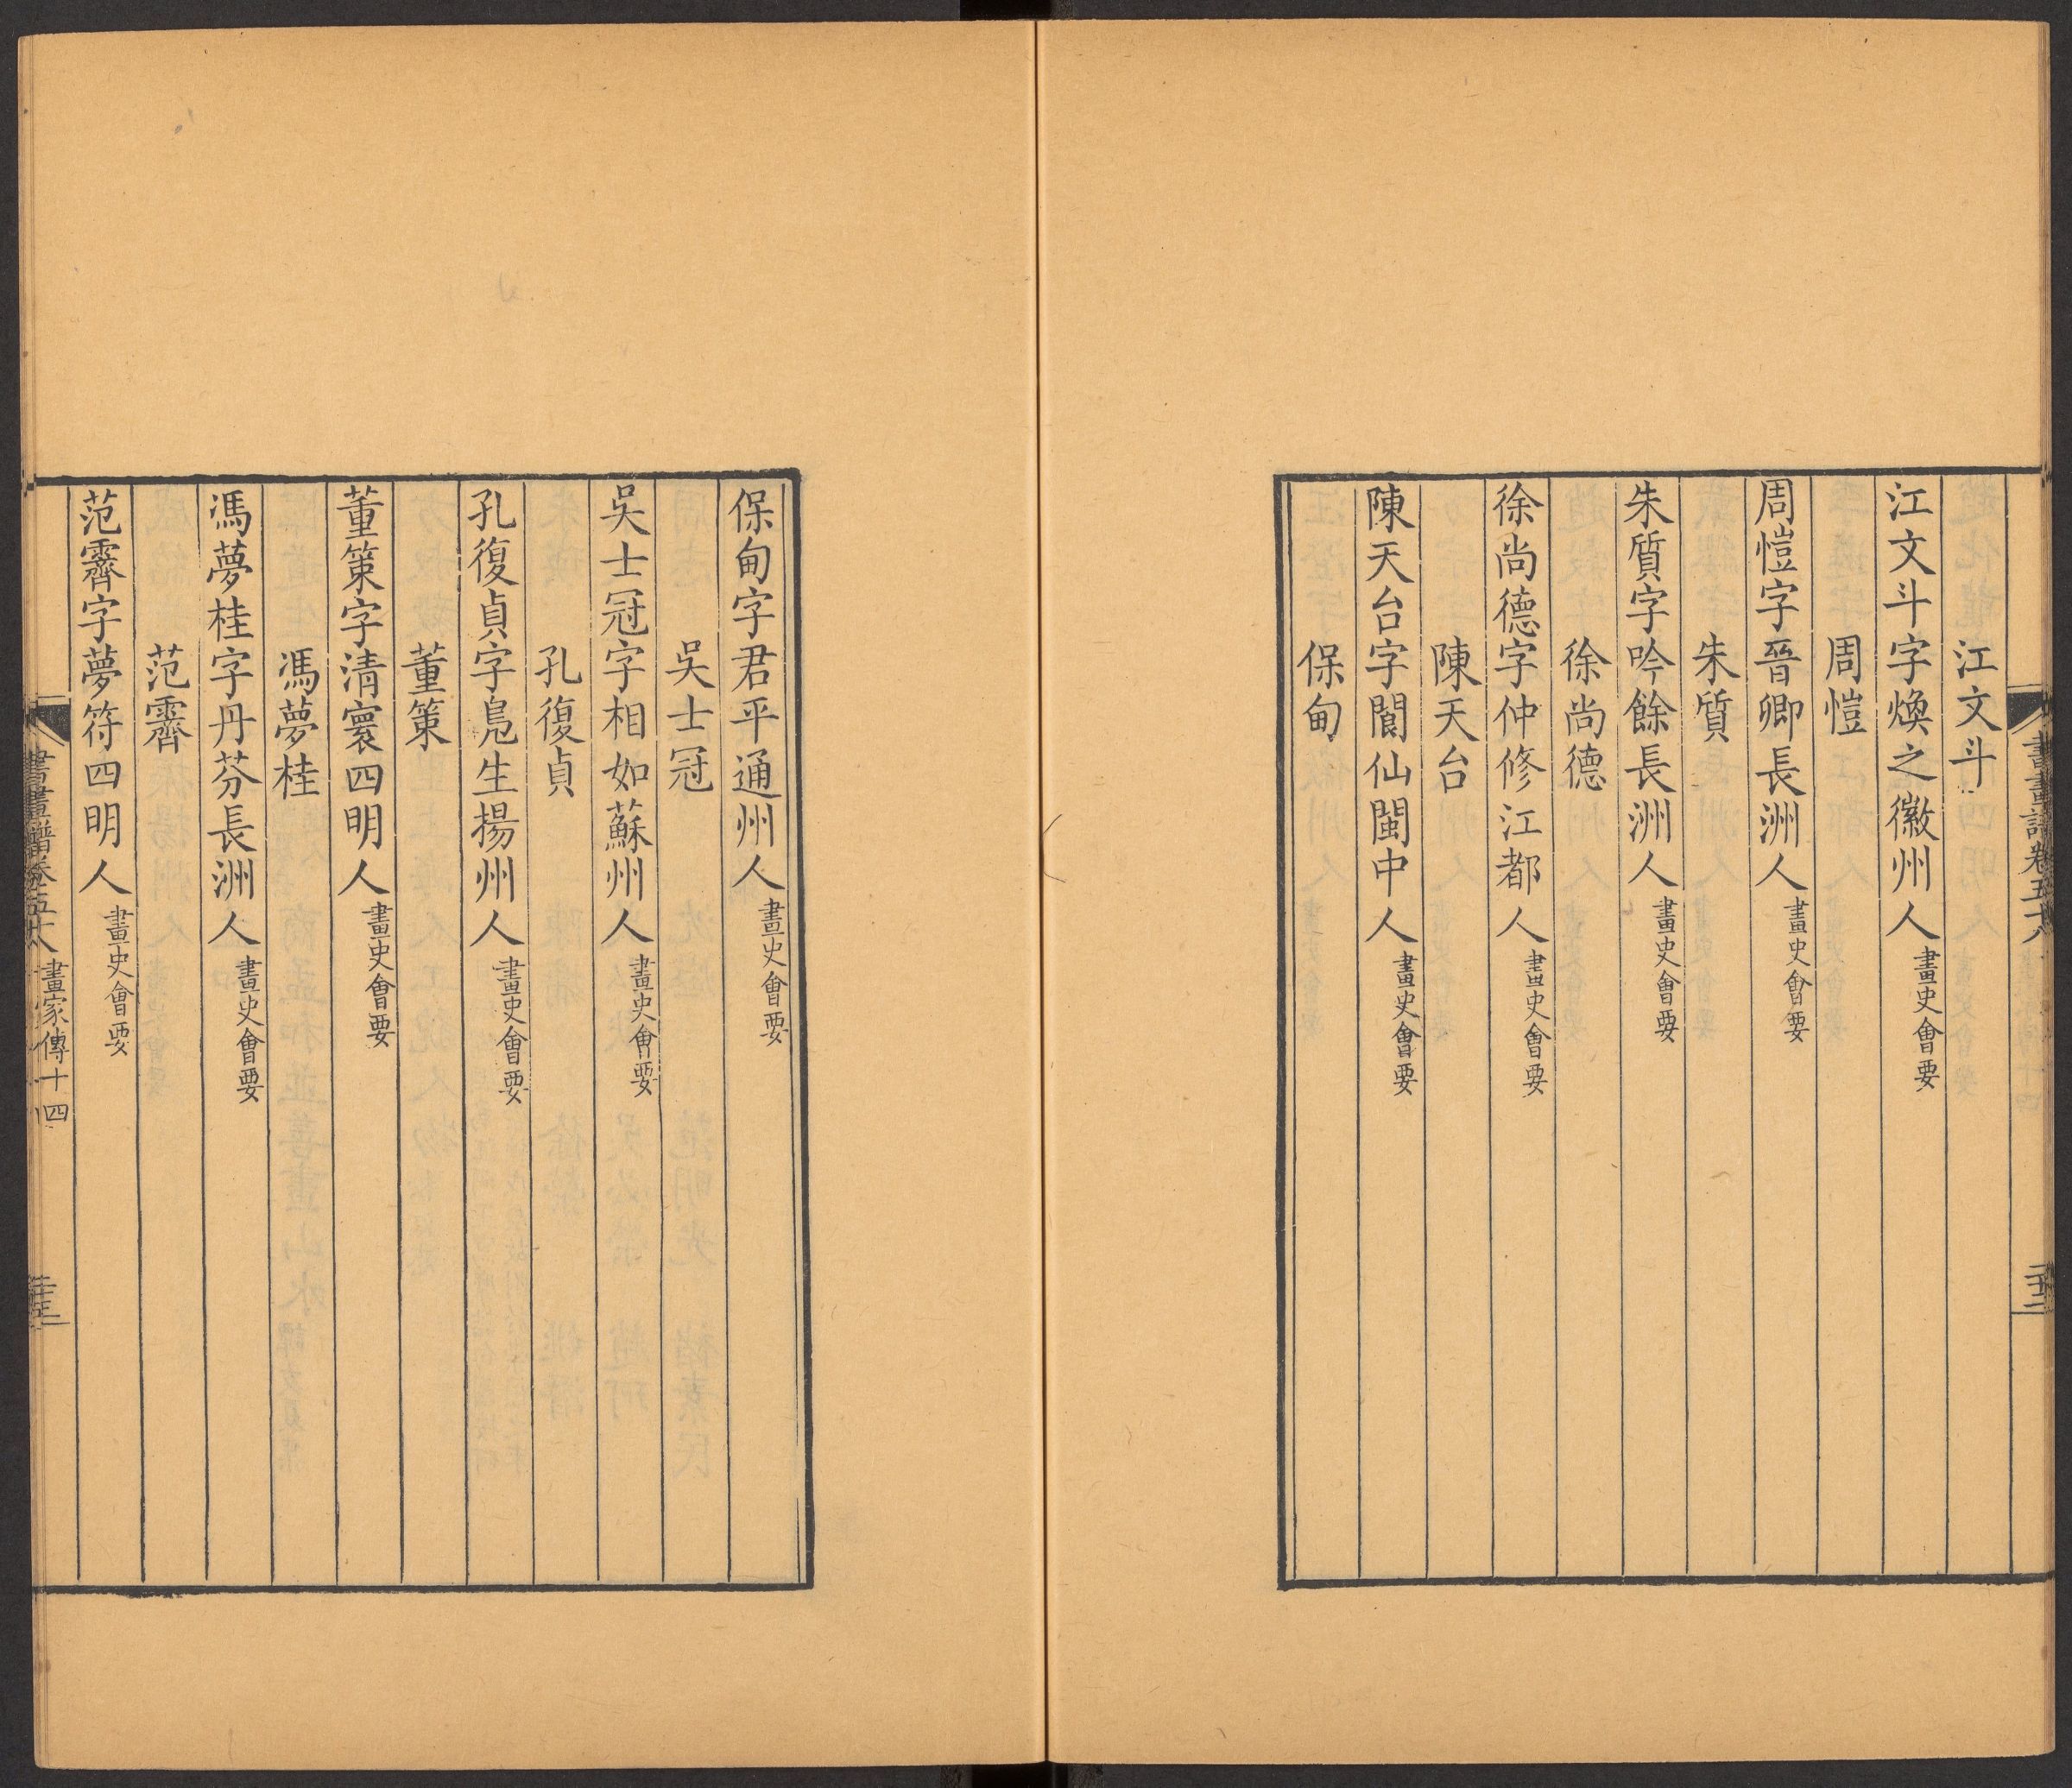 江文斗
江文斗字煥之徽州人畫史會要
周愷
周愷字晉卿長洲人畫史會要
朱質
朱質字吟餘長洲人畫史會要
徐尚德
徐尚德字仲修江都人畫史會要
陳天台
陳天台字閬仙閩中人畫史會要
保甸
保甸字君平通州人畫史會要
吳士冠
吳士冠字相如蘇州人畫史會要
孔復貞
孔復貞字鳧生揚州人畫史會要
董策
董策字清寰四明人畫史會要
馮夢桂
馮夢桂字丹芬長洲人畫史會要
范霽
范霽字夢符四明人畫史會要
書畫譜卷五十八 畫家傳十四